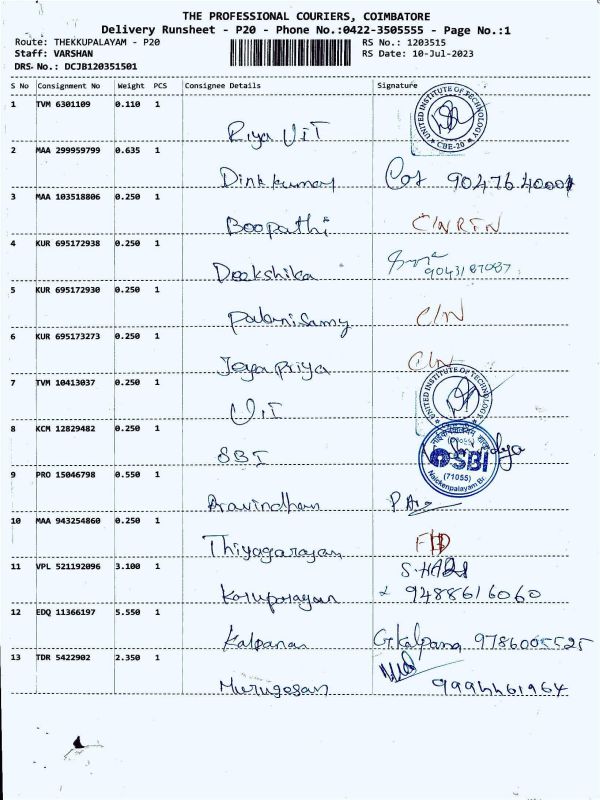 THE PROFESSIONAL COURIERS, COIMBATORE
Delivery Runsheet - P20 - Phone No.:0422-3505555 - Page No.:1
Route: THEKKUPALAYAM - P20 RS No.: 1203515
Staff: VARSHAN RS Date: 10-Jul-2023
DRS. No.: DCJB120351501
S No Consignment No Weight PCS Consignee Details Signature
1 TVM 6301109 0.110 1
UNITED INSTITUTE OF TECHNOLOGY
* CBE-20 *
Riya UIT
2 MAA 299959799 0.635 1
Dinkkumar
3 MAA 103518806 0.250 1
Boopathi C/N RTN
4 KUR 695172938 0.250 1
Deekshika
5 KUR 695172930 0.250 1
Palanisamy C/N
6 KUR 695173273 0.250 1
Jeyapriya C/N
7 TVM 10413037 0.250 1
UNITED INSTITUTE OF TECHNOLOGY
UIT
8 KCM 12829482 0.250 1
SBI SBI
(71055)
9 PRO 15046798 0.550 1
Aravindhan
10 MAA 943254860 0.250 1
Thiyagarajan
11 VPL 521192096 3.100 1
9488616060
12 EDQ 11366197 5.550 1
Kalpana G.Kalpana 9786005525
13 TDR 5422902 2.350 1
Murugesan